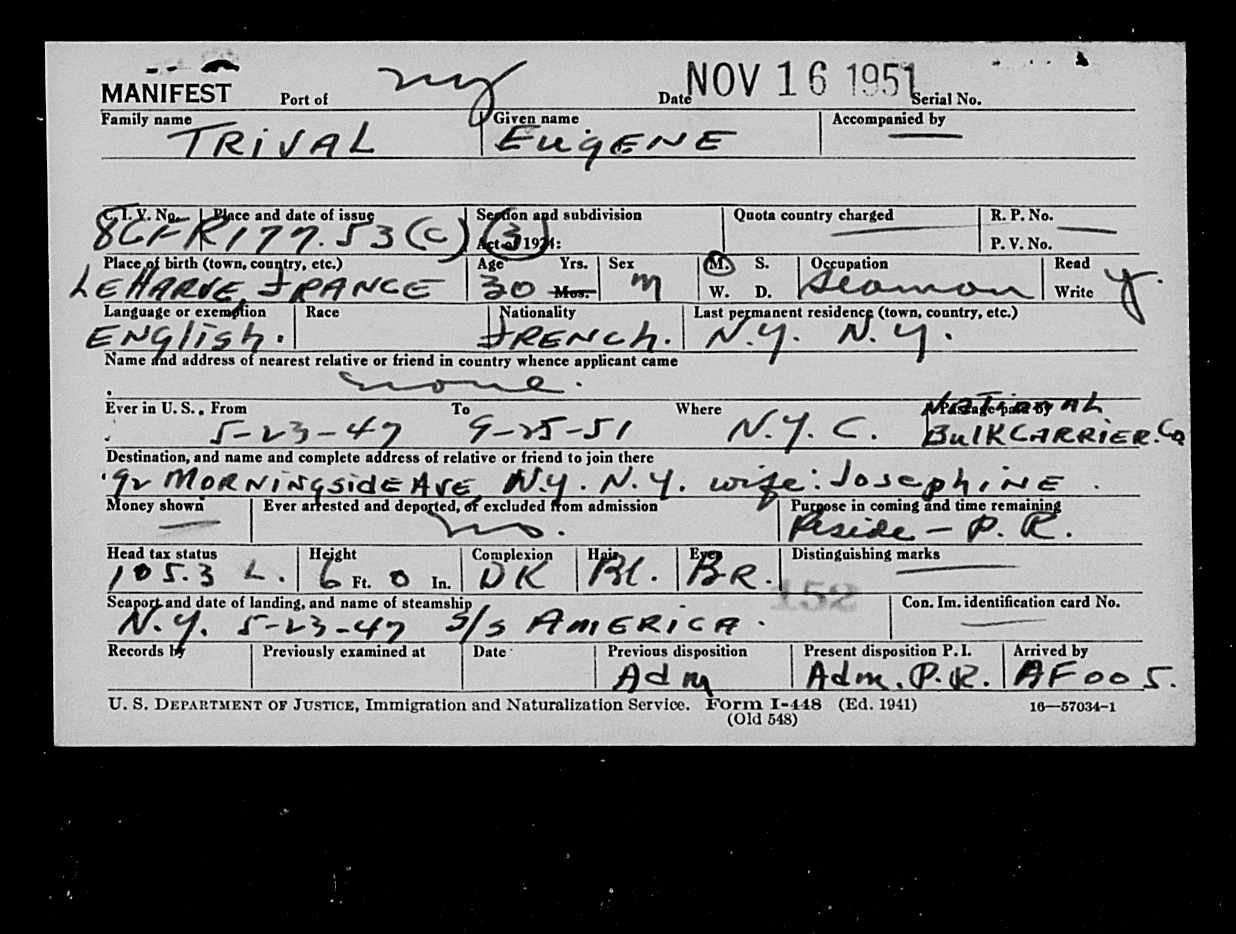 MANIFEST Port of NY Date NOV 16 1951 Serial No.
Family name Given name Accompanied by
TRIVAL EUGENE —
C. I. V. No. Place and date of issue Section and subdivision Quota country charged R. P. No.
8CFR177.53(c)(3) Act of 1924: — P. V. No. —
Place of birth (town, country, etc.) Age Yrs. Sex M. S. Occupation Read
LEHARVE, FRANCE 30 Mos. M W. D. Seaman Write Y.
Language or exemption Race Nationality Last permanent residence (town, country, etc.)
ENglish. FRENCh. N.Y. N.Y.
Name and address of nearest relative or friend in country whence applicant came
none.
Ever in U. S., From To Where Passage paid by
5-23-47 9-25-51 N.Y.C. NATIONAL BulKCARRIER.Co
Destination, and name and complete address of relative or friend to join there
92 MORNiNgsidE AVE, N.Y. N.Y. wife: JosephiNE.
Money shown Ever arrested and deported, or excluded from admission Purpose in coming and time remaining
— no. Reside - P.R.
Head tax status Height Complexion Hair Eyes Distinguishing marks
105.3 L. 6 Ft. 0 In. DK Bl. BR. —
152
Seaport and date of landing, and name of steamship Con. Im. identification card No.
N.Y. 5-23-47 S/S AMERICA. —
Records by Previously examined at Date Previous disposition Present disposition P. I. Arrived by
Adm Adm. P.R. AF005.
U. S. DEPARTMENT OF JUSTICE, Immigration and Naturalization Service. Form I-448 (Ed. 1941) 16—57034-1
(Old 548)